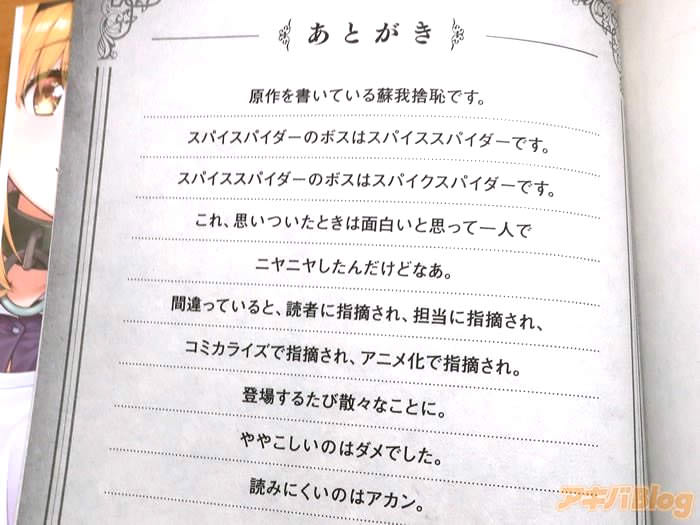 あとがき
原作を書いている蘇我捨恥です。
スパイスパイダーのボスはスパイススパイダーです。
スパイススパイダーのボスはスパイクスパイダーです。
これ、思いついたときは面白いと思って一人で
ニヤニヤしたんだけどなあ。
間違っていると、読者に指摘され、担当に指摘され、
コミカライズで指摘され、アニメ化で指摘され。
登場するたび散々なことに。
ややこしいのはダメでした。
読みにくいのはアカン。
アキバBlog